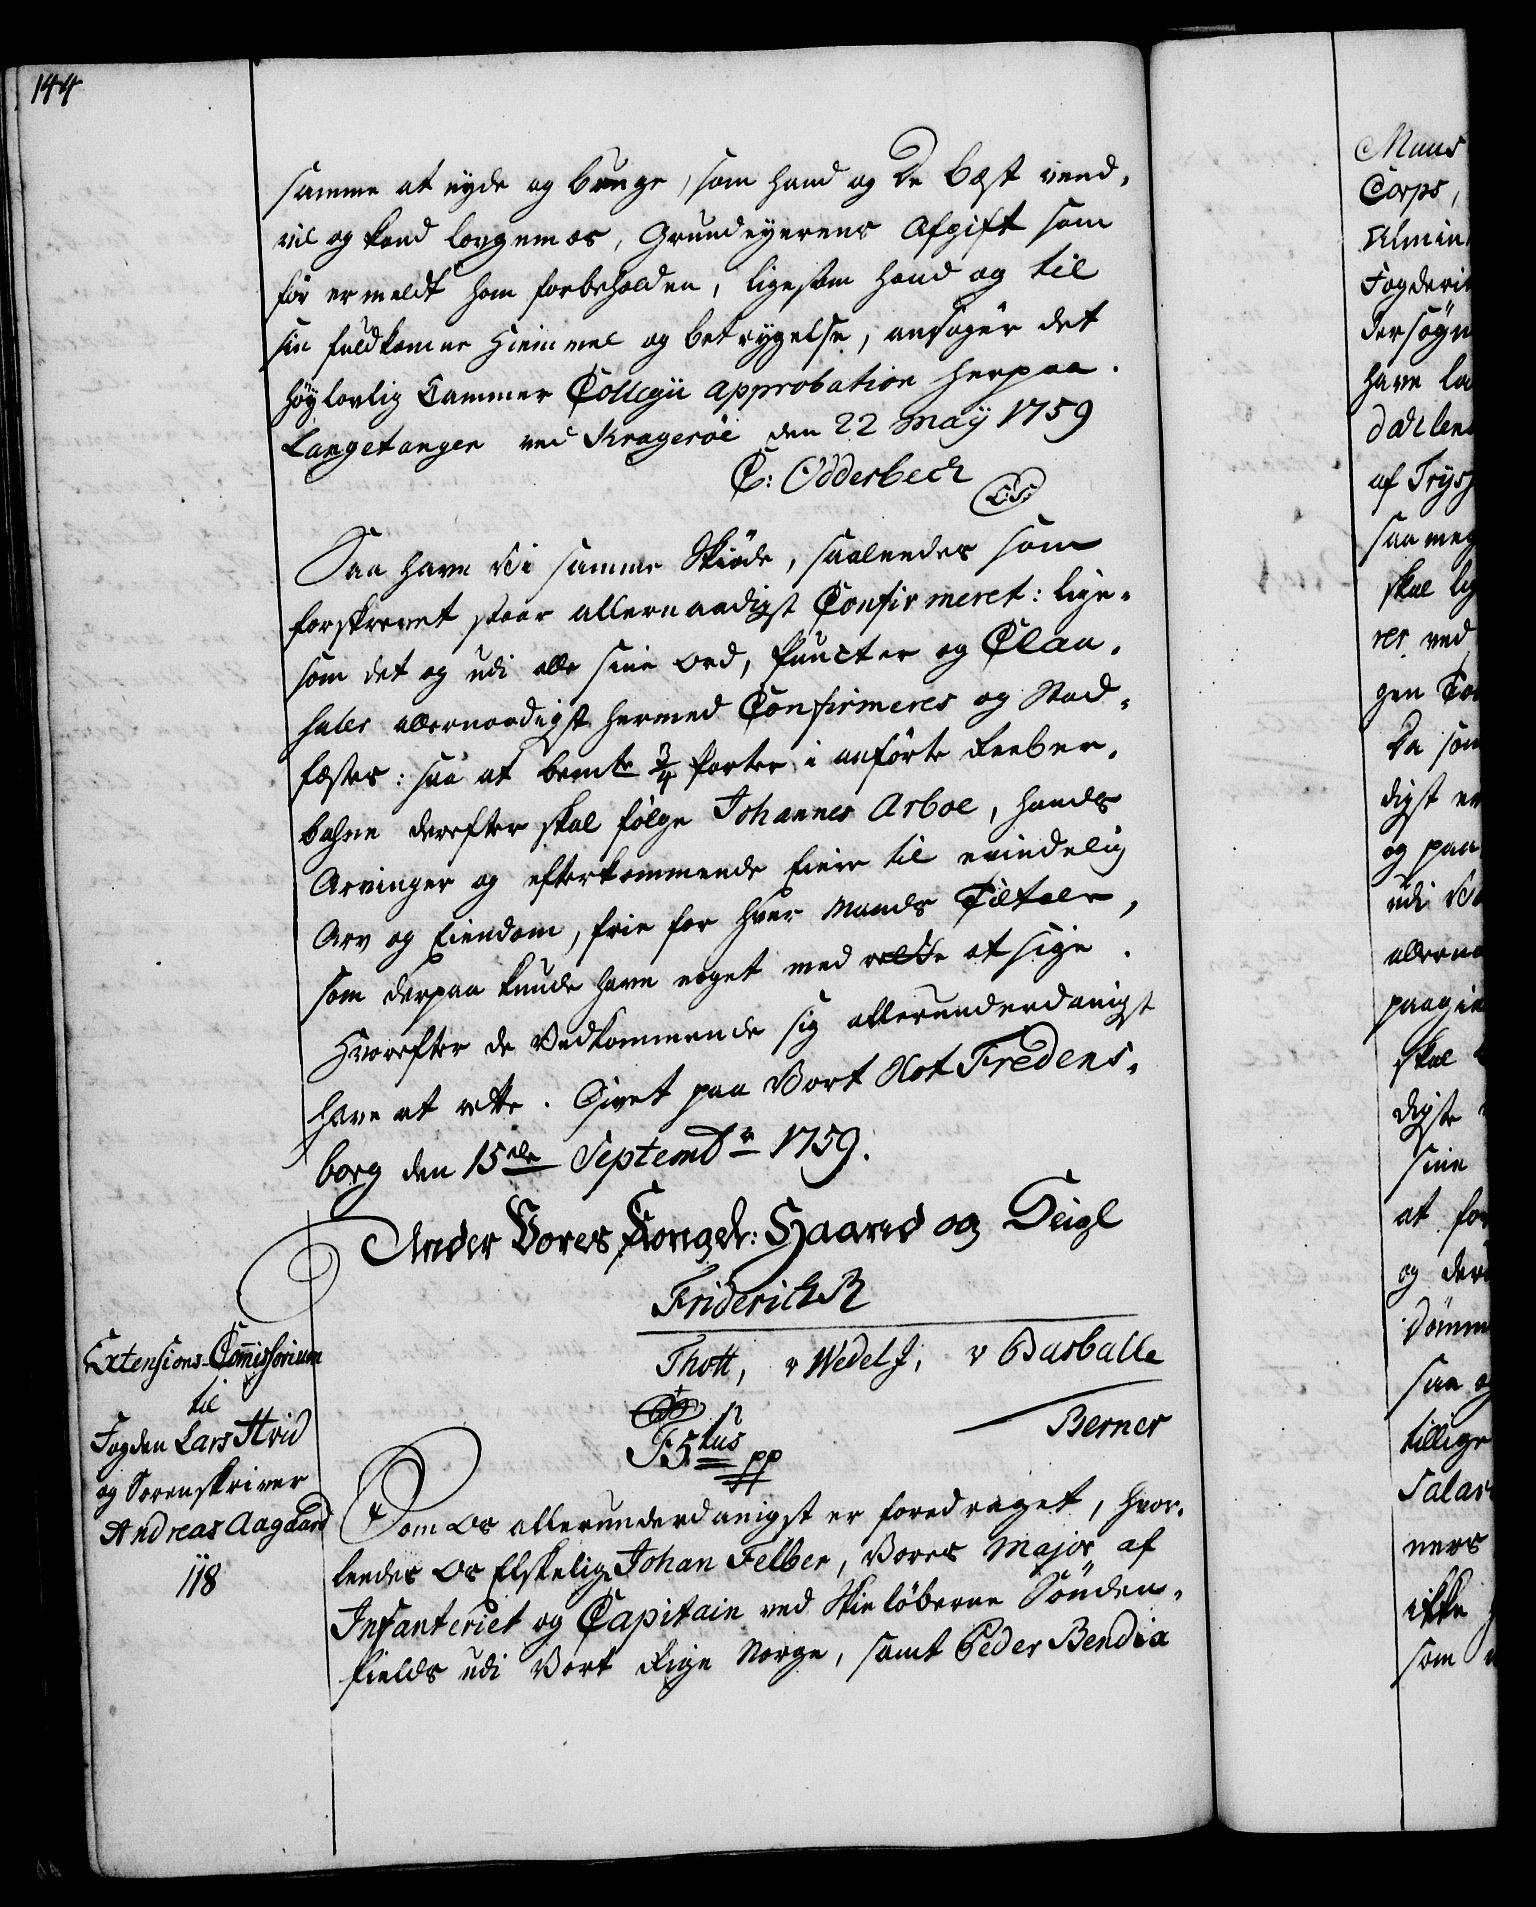 144
samme at nyde og bruge, som hand og De bæst veed,
vil og kand lovgemæs, Grundeyerens Afgift som
før ermeldt ham forbeholden, ligesom hand og til
sin fuldkomne Hiemmel og betrygelse, ansøger det
høylovlig Cammer Collegii approbation herpaa.
Langetangen ved Kragerøe den 22 May 1759
C: Odderbech
L.S.
Saa have Vi samme Skiøde, saaledes som
forskrevet staar allernaadigst Confirmeret: lige-
som det og udi alle sine Ord, Puncter og Clau-
suler allernaadigst hermed Confirmeres og Stad-
fæstes: saa at bemte 3/4 Parter i anførte
derefter skal følge Johannes Arboe, hands
Arvinger og efterkommende Eiere til evindelig
Arv og Eiendom, frie for hver Mands Tiltale,
som derpaa kunde have noget med rette at sige.
Hvorefter de Vedkommende sig allerunderdanigst
have at rette. Givet paa Vort Slot Fredens-
borg den 15de Septembr 1759.
Under Vores Kongel: Haand og Zeigl
Friderich R
Thott, v Wedel J, v Barballe
Berner
F 5tus pp
Extensions-Commissorium
til
Fogden Lars Hvid
og Sorenskriver
Andreas Aagaard
118
Som Os allerunderdanigst er foredraget, hvor-
ledes Os Elskelige Johan Felber, Vores Major af
Infanteriet og Capitain ved Skieløberne Sønden-
fields udi Vort Rige Norge, samt Peder Bendix
Maus
Corps,
Almin
Fogderi
dersøgn
have la
af Trys
saa meg
skal lig
res ved
gen
Da som
digst er
og paa
udi
allerna
paagie
skal
digste
sine
at for
og der
Dømm
saa og
tillige
Salar
ners
ikke
som